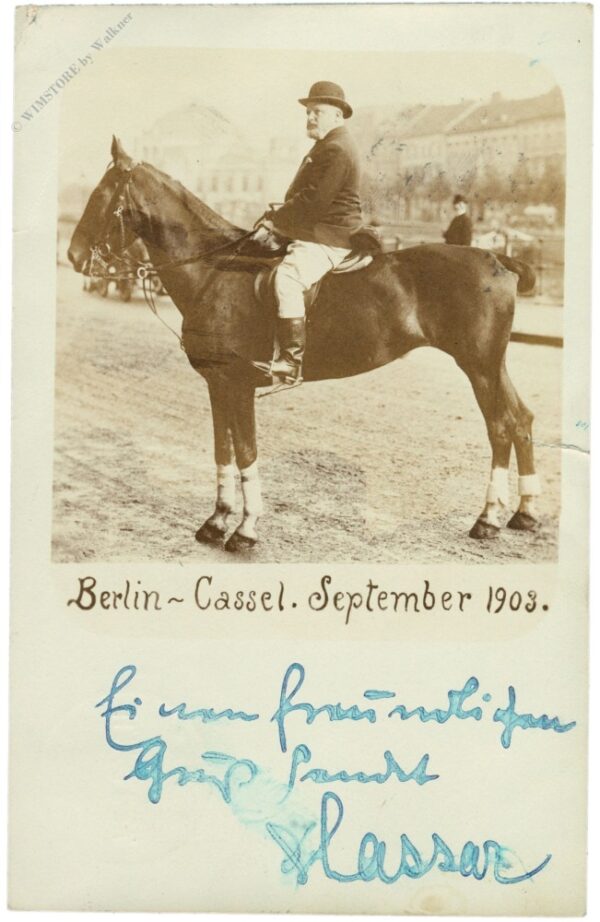 © WIMSTORE by Walkner
Berlin ~ Cassel. September 1903.
Einen freundlichen
Gruß sendet